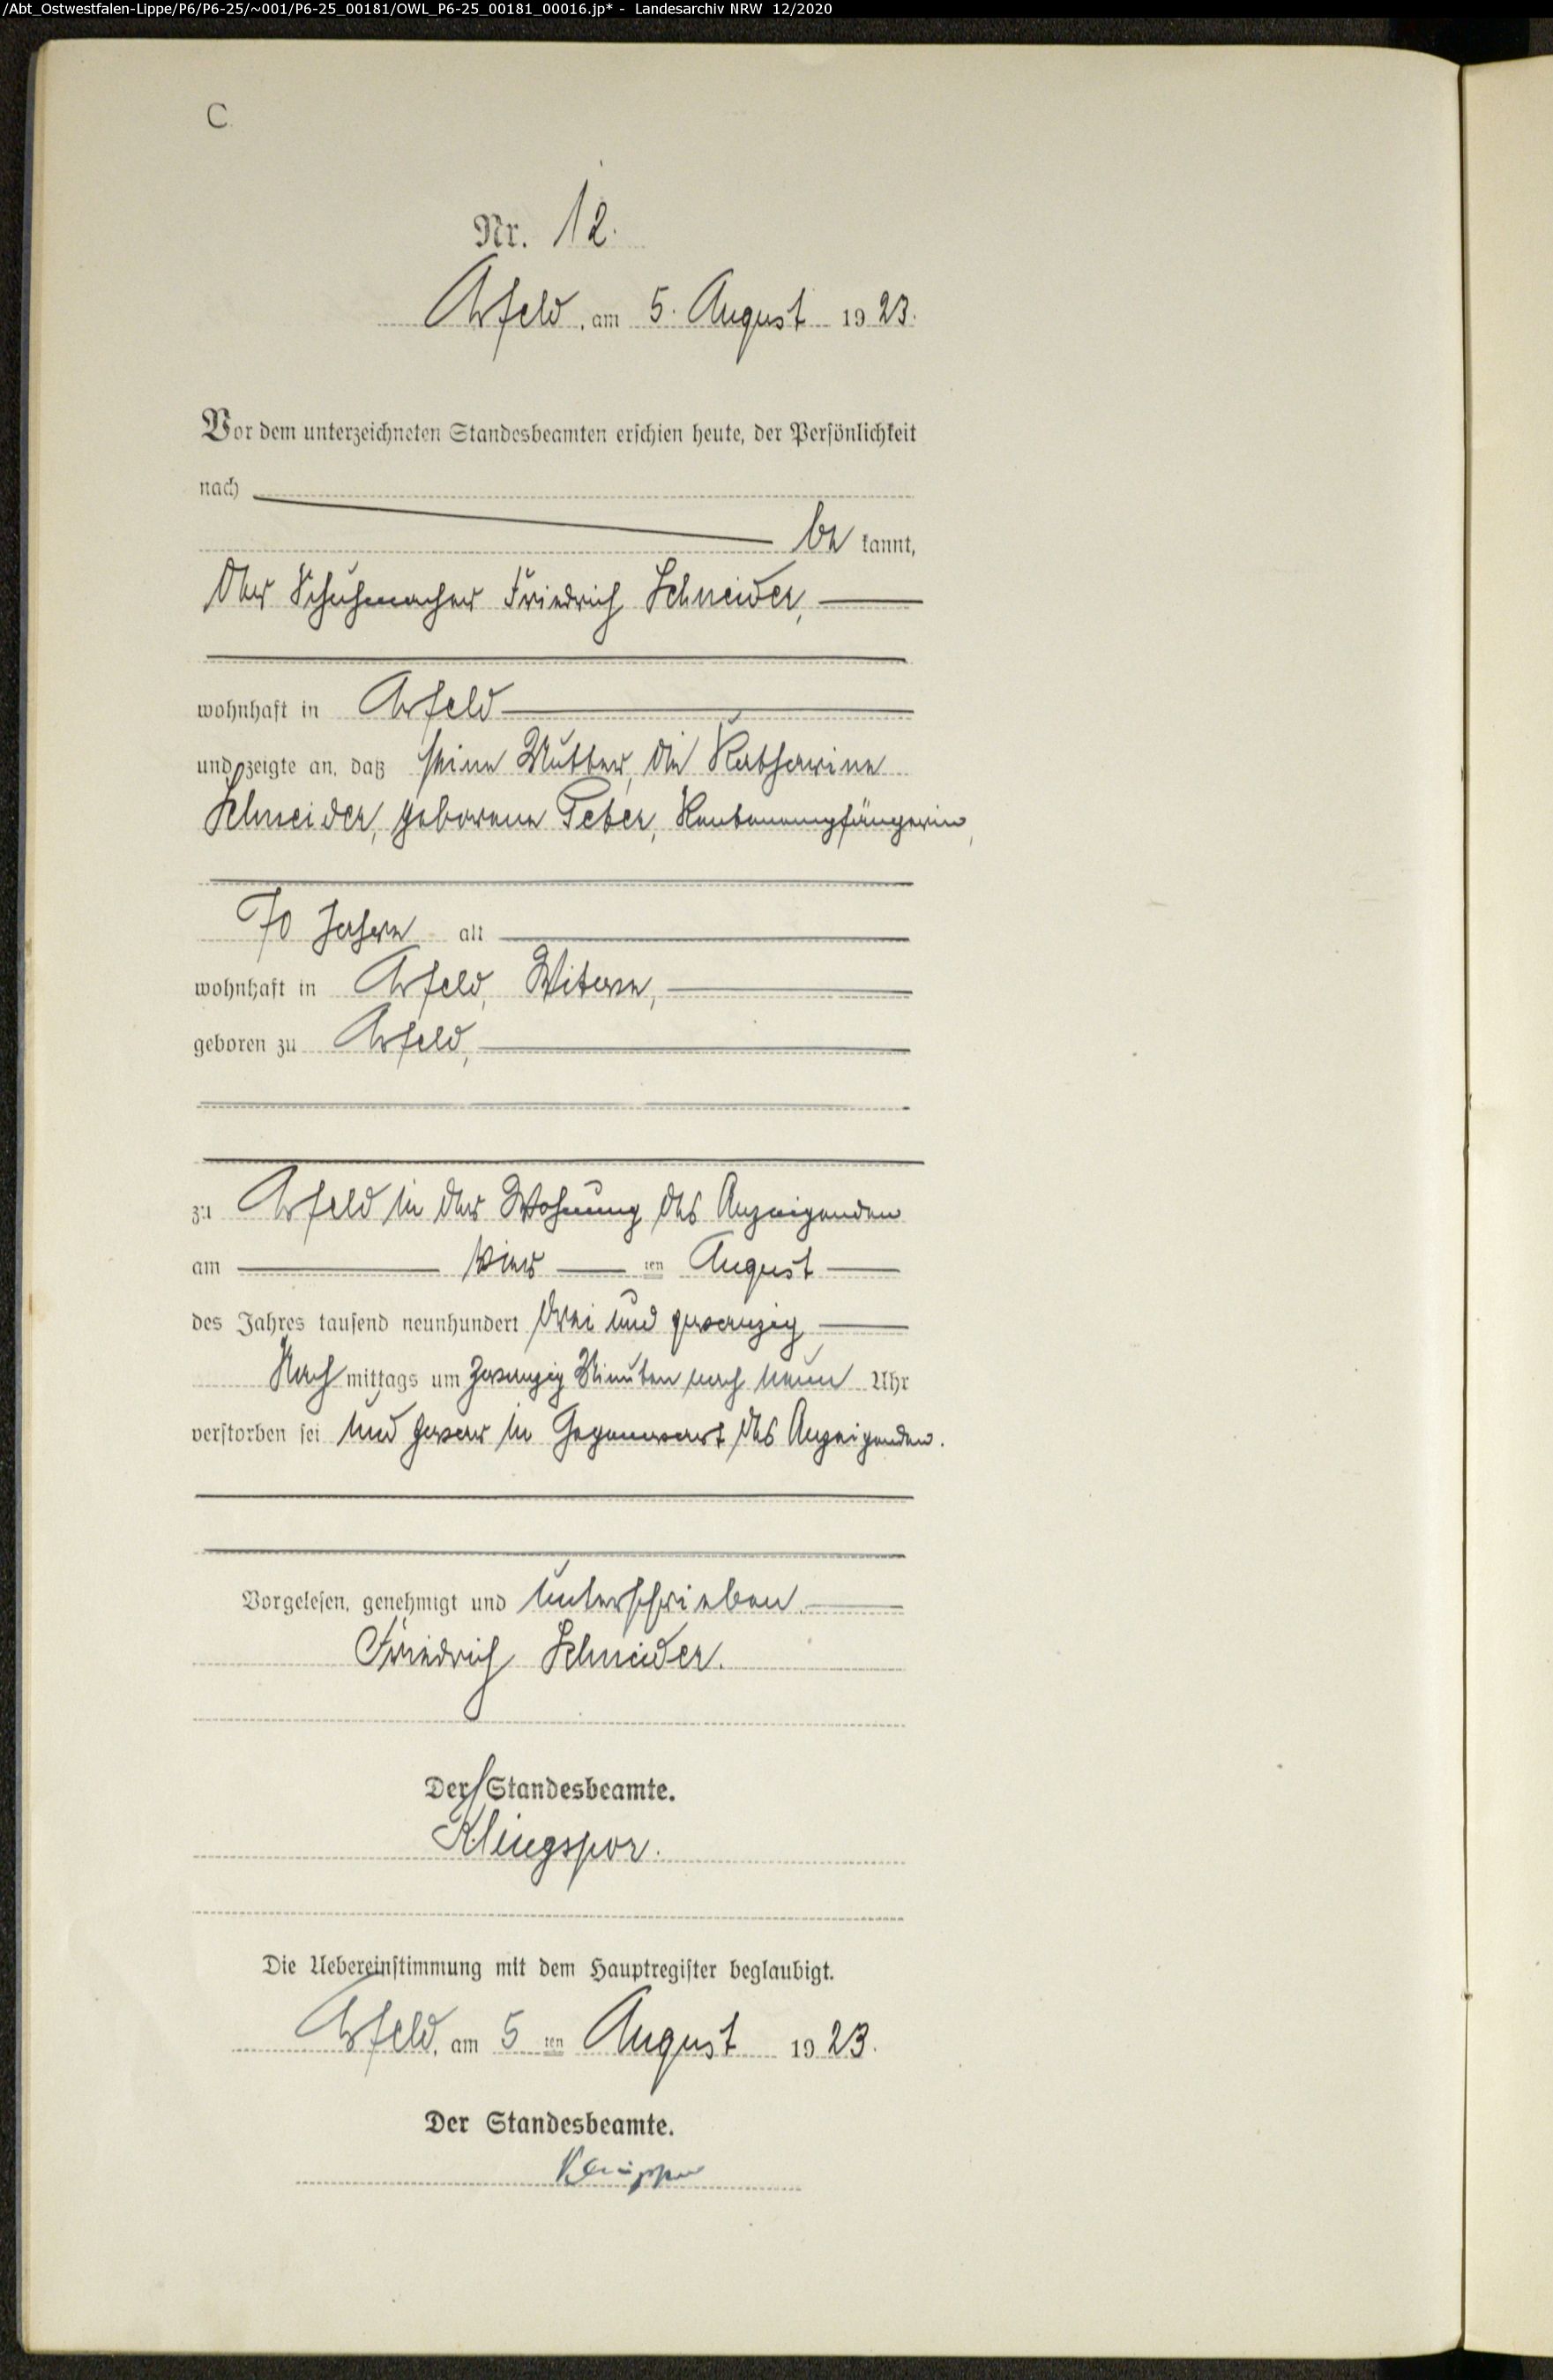 /Abt_Ostwestfalen-Lippe/P6/P6-25/~001/P6-25_00181/OWL_P6-25_00181_00016.jp* - Landesarchiv NRW 12/2020
C
Nr. 12.
Arfeld, am 5. August 1923.
Vor dem unterzeichneten Standesbeamten erschien heute, der Persönlichkeit
nach
be kannt,
der Schuhmacher Friedrich Schneider,
wohnhaft in Arfeld
und zeigte an, daß seine Mutter, die Katharine
Schneider, geborene Feber, Rentenempfängerin,
70 Jahre alt
wohnhaft in Arfeld, Witwe,
geboren zu Arfeld,
zu Arfeld in der Wohnung des Anzeigenden
am vier ten August
des Jahres tausend neunhundert drei und zwanzig
Nach mittags um zwanzig Minuten nach neun Uhr
verstorben sei und zwar in Gegenwart des Anzeigenden.
Vorgelesen, genehmigt und unterschrieben.
Friedrich Schneider.
Der Standesbeamte.
Klingspor.
Die Uebereinstimmung mit dem Hauptregister beglaubigt.
Arfeld, am 5 ten August 1923.
Der Standesbeamte.